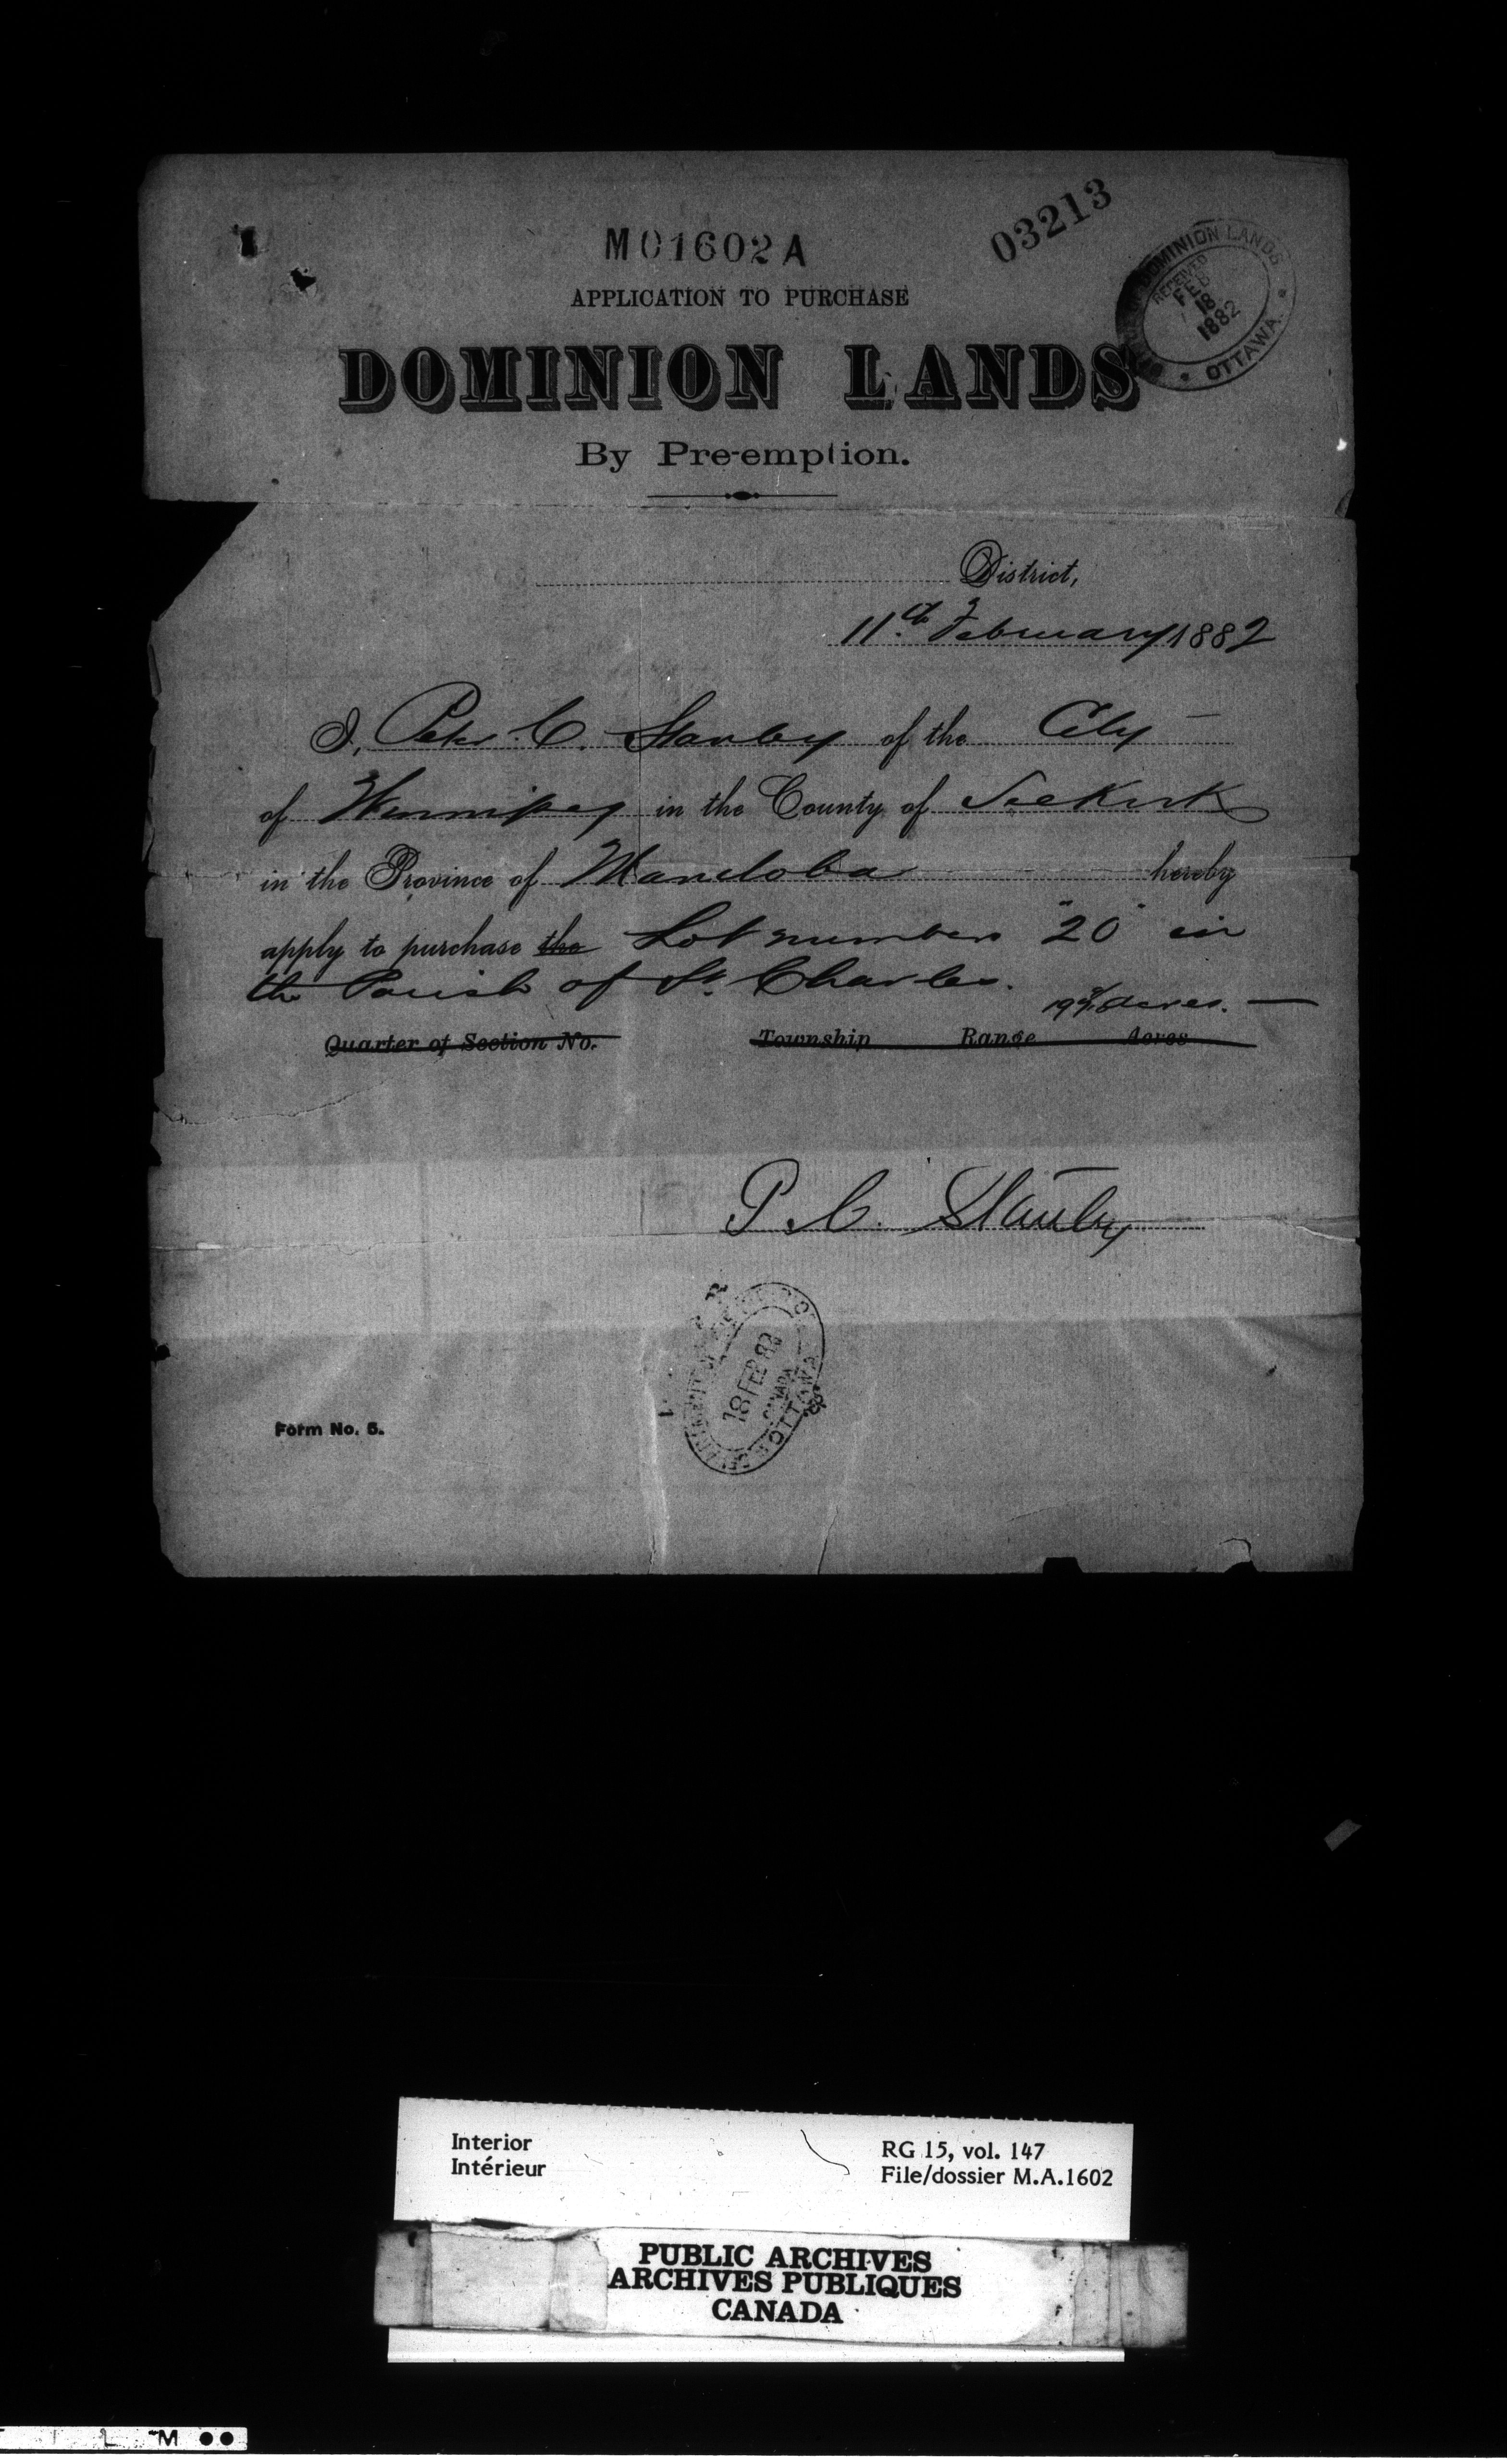 M01602A
03213
APPLICATION TO PURCHASE
DOMINION LANDS
By Pre-emption.
DOMINION LANDS
RECEIVED
FEB
18
1882
OTTAWA
District,
11th February 1882
I, Peter C. of the City
of Winnipeg in the County of Selkirk
in the Province of Manitoba hereby
apply to purchase the Lot number "20" in
the Parish of St. Charles.
acres.
Quarter of Section No. Township Range Acres
P. C.
18 FEB 82
CANADA
OTTAWA
Form No. 5.
Interior
Intérieur
RG 15, vol. 147
File/dossier M.A.1602
PUBLIC ARCHIVES
ARCHIVES PUBLIQUES
CANADA